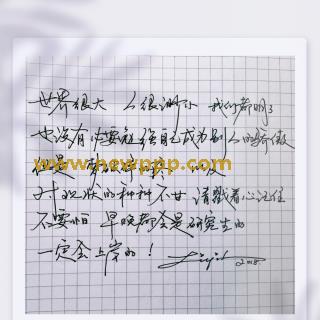 世界很大 人很渺小 我们都明了
也没有必要勉强自己成为别人的骄傲
但是
www.newppp.com
对现状的种种不甘 请戳着心记住
不要怕 早晚都会是研究生的
一定会上岸的！ 2018.